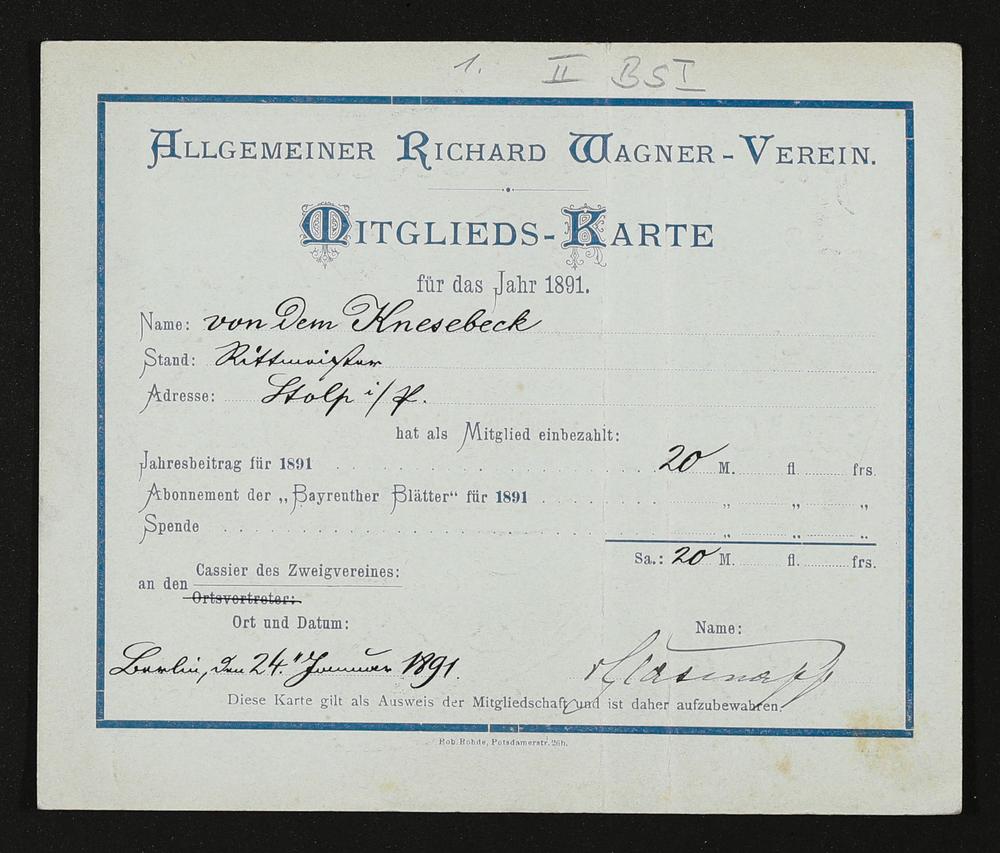 1. II BSI
ALLGEMEINER RICHARD WAGNER-VEREIN.
MITGLIEDS-KARTE
für das Jahr 1891.
Name: von dem Knesebeck
Stand: Rittmeister
Adresse: Stolp i/P.
hat als Mitglied einbezahlt:
Jahresbeitrag für 1891 20 M. fl. frs.
Abonnement der „Bayreuther Blätter“ für 1891 „ „ „
Spende „ „ „
Sa.: 20 M. fl. frs.
an den Cassier des Zweigvereines:
Ortsvertreter:
Ort und Datum: Name:
Berlin, den 24. Januar 1891.
Diese Karte gilt als Ausweis der Mitgliedschaft und ist daher aufzubewahren.
Rob. Rohde, Potsdamerstr. 26h.